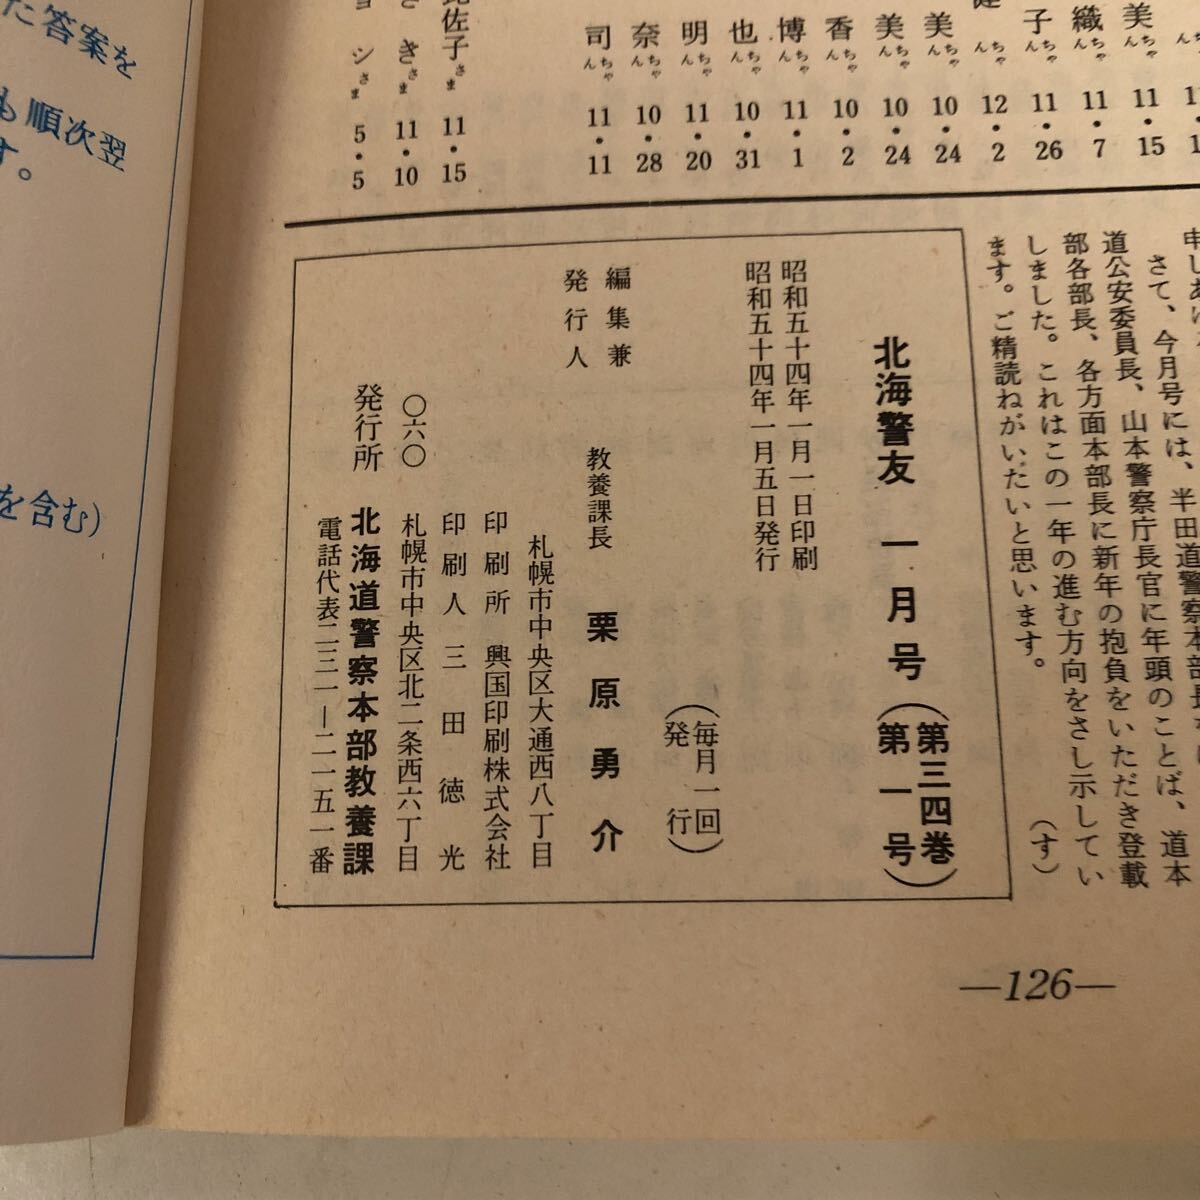 美
織ちゃん 11・7
子ちゃん 11・26
ちゃん 12・2
美ちゃん 10・24
美ちゃん 10・24
香ちゃん 10・2
博ちゃん 11・1
也ちゃん 10・31
明ちゃん 11・20
奈ちゃん 10・28
司ちゃん 11・11
佐子さま 11・15
きさま 11・10
シさま 5・5
さて、今月号には、半田道警察本部長
道公安委員長、山本警察庁長官に年頭のことば、道本
部各部長、各方面本部長に新年の抱負をいただき登載
しました。これはこの一年の進む方向をさし示してい
ます。ご精読ねがいたいと思います。
(す)
北海警友 一月号(第三四巻)
(第一号)
昭和五十四年一月一日印刷
昭和五十四年一月五日発行
(毎月一回
発行)
編集兼
発行人
教養課長 栗原勇介
札幌市中央区大通西八丁目
印刷所 興国印刷株式会社
印刷人 三田徳光
〇六〇 札幌市中央区北二条西六丁目
発行所 北海道警察本部教養課
電話代表二三一―二一五一番
―126―
た答案を
も順次翌
す。
を含む)